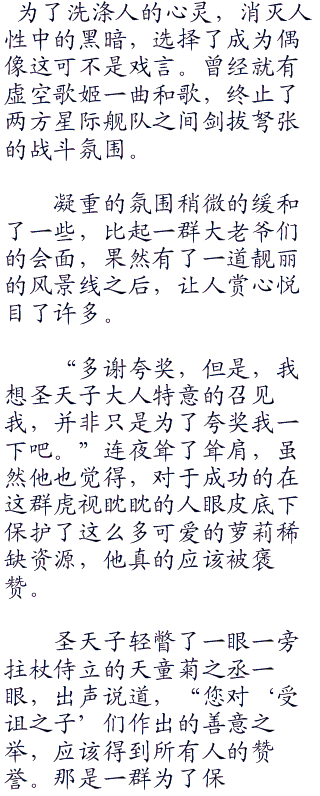 为了洗涤人的心灵，消灭人
性中的黑暗，选择了成为偶
像这可不是戏言。曾经就有
虚空歌姬一曲和歌，终止了
两方星际舰队之间剑拔弩张
的战斗氛围。
凝重的氛围稍微的缓和
了一些，比起一群大老爷们
的会面，果然有了一道靓丽
的风景线之后，让人赏心悦
目了许多。
“多谢夸奖，但是，我
想圣天子大人特意的召见
我，并非只是为了夸奖我一
下吧。”连夜耸了耸肩，虽
然他也觉得，对于成功的在
这群虎视眈眈的人眼皮底下
保护了这么多可爱的萝莉稀
缺资源，他真的应该被褒
赞。
圣天子轻瞥了一眼一旁
拄杖侍立的天童菊之丞一
眼，出声说道，“您对‘受
诅之子’们作出的善意之
举，应该得到所有人的赞
誉。那是一群为了保